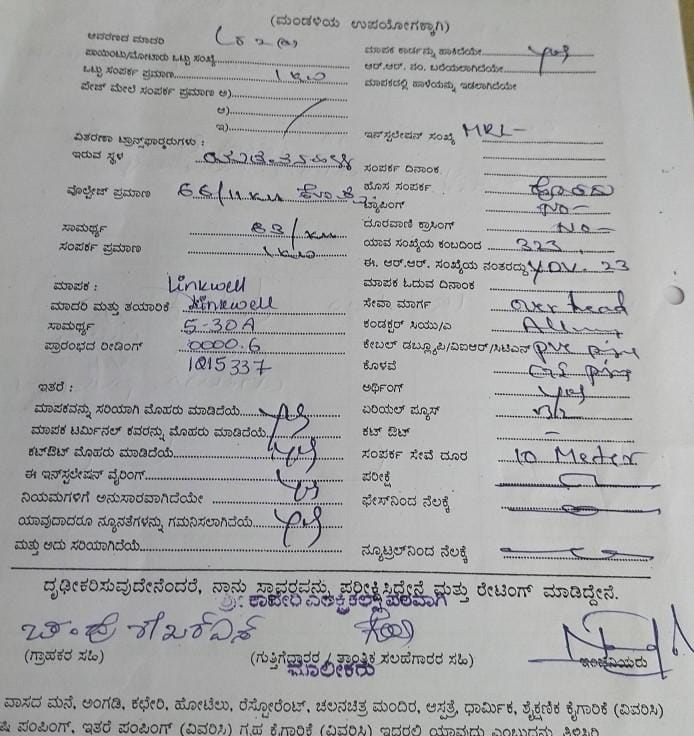 (ಮಂಡಳಿಯ ಉಪಯೋಗಕ್ಕಾಗಿ)
ಆವರಣದ ಮಾದರಿ
ಪಾಯಿಂಟು/ಮೋಟಾರು ಒಟ್ಟು ಸಂಖ್ಯೆ
ಒಟ್ಟು ಸಂಪರ್ಕ ಪ್ರಮಾಣ
ಪೇಜ್ ಮೇಲೆ ಸಂಪರ್ಕ ಪ್ರಮಾಣ ಅ)
ಆ)
ಇ)
ವಿತರಣಾ ಟ್ರಾನ್ಸ್‌ಫಾರ್ಮರುಗಳು :
ಇರುವ ಸ್ಥಳ
ವೋಲ್ಟೇಜ್ ಪ್ರಮಾಣ 66/11 KV
ಸಾಮರ್ಥ್ಯ 63/
ಸಂಪರ್ಕ ಪ್ರಮಾಣ
ಮಾಪಕ : Linkwell
ಮಾದರಿ ಮತ್ತು ತಯಾರಿಕೆ Linkwell
ಸಾಮರ್ಥ್ಯ 5-30A
ಪ್ರಾರಂಭದ ರೀಡಿಂಗ್ 0000.6
1015337
ಇತರೆ :
ಮಾಪಕವನ್ನು ಸರಿಯಾಗಿ ಮೊಹರು ಮಾಡಿದೆಯೆ yes
ಮಾಪಕ ಟರ್ಮಿನಲ್ ಕವರನ್ನು ಮೊಹರು ಮಾಡಿದೆಯೆ
ಕಟ್‌ಔಟ್ ಮೊಹರು ಮಾಡಿದೆಯೆ yes
ಈ ಇನ್‌ಸ್ಟಲೇಷನ್ ವೈರಿಂಗ್
ನಿಯಮಗಳಿಗೆ ಅನುಸಾರವಾಗಿದೆಯೇ yes
ಯಾವುದಾದರೂ ನ್ಯೂನತೆಗಳನ್ನು ಗಮನಿಸಲಾಗಿದೆಯೆ yes
ಮತ್ತು ಅದು ಸರಿಯಾಗಿದೆಯೆ
ಮಾಪಕ ಕಾರ್ಡನ್ನು ಹಾಕಿದೆಯೇ yes
ಆರ್.ಆರ್. ನಂ. ಬರೆಯಲಾಗಿದೆಯೇ
ಮಾಪಕದಲ್ಲಿ ಹಾಳೆಯನ್ನು ಇಡಲಾಗಿದೆಯೇ
ಇನ್‌ಸ್ಟಲೇಷನ್ ಸಂಖ್ಯೆ MRL-
ಸಂಪರ್ಕ ದಿನಾಂಕ
ಹೊಸ ಸಂಪರ್ಕ ಹೊಸದು
ಟ್ಯಾಪಿಂಗ್ NO-
ದೂರವಾಣಿ ಕ್ರಾಸಿಂಗ್ NO-
ಯಾವ ಸಂಖ್ಯೆಯ ಕಂಬದಿಂದ 323
ಈ. ಆರ್.ಆರ್. ಸಂಖ್ಯೆಯ ನಂತರದ್ದು
ಮಾಪಕ ಓದುವ ದಿನಾಂಕ
ಸೇವಾ ಮಾರ್ಗ over head
ಕಂಡಕ್ಟರ್ ಸಿಯು/ಎ
ಕೇಬಲ್ ಡಬ್ಲ್ಯೂಪಿ/ವಿಐಆರ್/ಸಿಟಿಎಸ್ pvc
ಕೊಳವೆ
ಅರ್ಥಿಂಗ್ yes
ಏರಿಯಲ್ ಫ್ಯೂಸ್
ಕಟ್ ಔಟ್ -
ಸಂಪರ್ಕ ಸೇವೆ ದೂರ 10 Meter
ಪರೀಕ್ಷೆ
ಫೇಸ್‌ನಿಂದ ನೆಲಕ್ಕೆ
ನ್ಯೂಟ್ರಲ್‌ನಿಂದ ನೆಲಕ್ಕೆ
ದೃಢೀಕರಿಸುವುದೇನೆಂದರೆ, ನಾನು ಸ್ಥಾವರವನ್ನು ಪರೀಕ್ಷಿಸಿದ್ದೇನೆ ಮತ್ತು ರೇಟಿಂಗ್ ಮಾಡಿದ್ದೇನೆ.
ಶ್ರೀ ಕಾವೇರಿ ಎಲೆಕ್ಟ್ರಿಕಲ್ಸ್ ಪರವಾಗಿ
(ಗ್ರಾಹಕರ ಸಹಿ) (ಗುತ್ತಿಗೆದ್ದಾರರ / ತಾಂತ್ರಿಕ ಸಲಹೆಗಾರರ ಸಹಿ) ಇಂಜಿನಿಯರು
ಮಾಲೀಕರು
ವಾಸದ ಮನೆ, ಅಂಗಡಿ, ಕಛೇರಿ, ಹೋಟೆಲು, ರೆಸ್ಟೋರೆಂಟ್, ಚಲನಚಿತ್ರ ಮಂದಿರ, ಆಸ್ಪತ್ರೆ, ಧಾರ್ಮಿಕ, ಶೈಕ್ಷಣಿಕ ಕೈಗಾರಿಕೆ (ವಿವರಿಸಿ)
ಷಿ ಪಂಪಿಂಗ್, ಇತರೆ ಪಂಪಿಂಗ್ (ವಿವರಿಸಿ) ಗೃಹ ಕೈಗಾರಿಕೆ (ವಿವರಿಸಿ) ಇದರಲ್ಲಿ ಯಾವುದು ಎಂಬುದನ್ನು ತಿಳಿಸಿರಿ